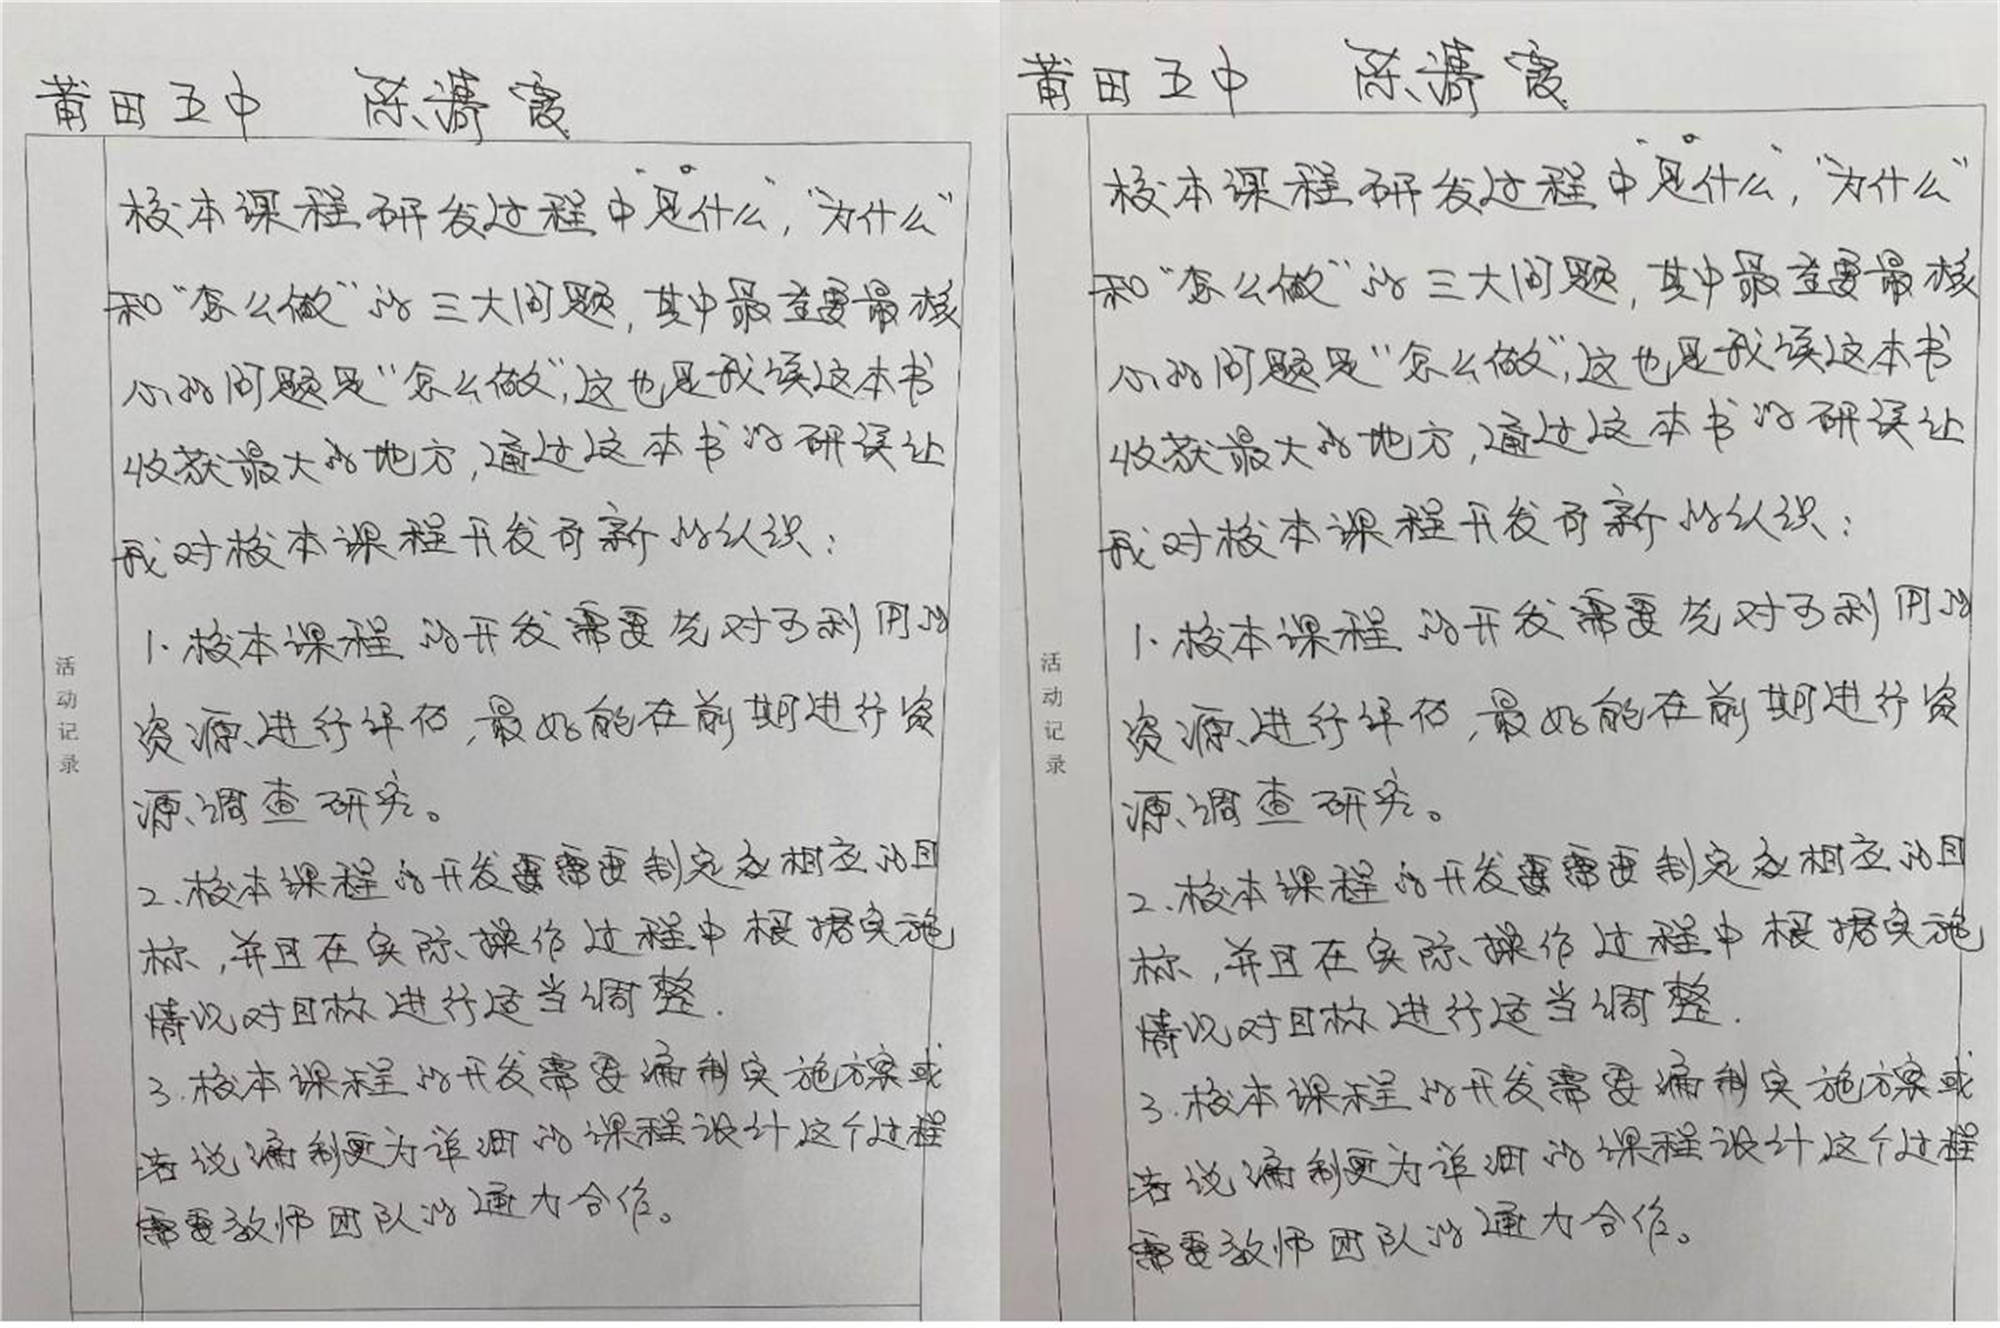 莆田五中 陈漪霞
校本课程研发过程中"是什么","为什么"
和"怎么做"的三大问题,其中最重要最核
心的问题是"怎么做",这也是我读这本书
收获最大的地方,通过这本书的研读让
我对校本课程开发有新的认识:
1.校本课程的开发需要先对可利用的
资源进行评估,最好能在前期进行资
源调查研究。
2.校本课程的开发要需要制定相应的目
标,并且在实际操作过程中根据实施
情况对目标进行适当调整.
3.校本课程的开发需要编制实施方案或
者说编制更为详细的课程设计,这个过程
需要教师团队的通力合作。
活动记录
莆田五中 陈漪霞
校本课程研发过程中"是什么","为什么"
和"怎么做"的三大问题,其中最重要最核
心的问题是"怎么做",这也是我读这本书
收获最大的地方,通过这本书的研读让
我对校本课程开发有新的认识:
1.校本课程的开发需要先对可利用的
资源进行评估,最好能在前期进行资
源调查研究。
2.校本课程的开发要需要制定相应的目
标,并且在实际操作过程中根据实施
情况对目标进行适当调整.
3.校本课程的开发需要编制实施方案或
者说编制更为详细的课程设计,这个过程
需要教师团队的通力合作。
活动记录